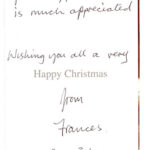 is much appreciated
Wishing you all a very
Happy Christmas
from
Frances